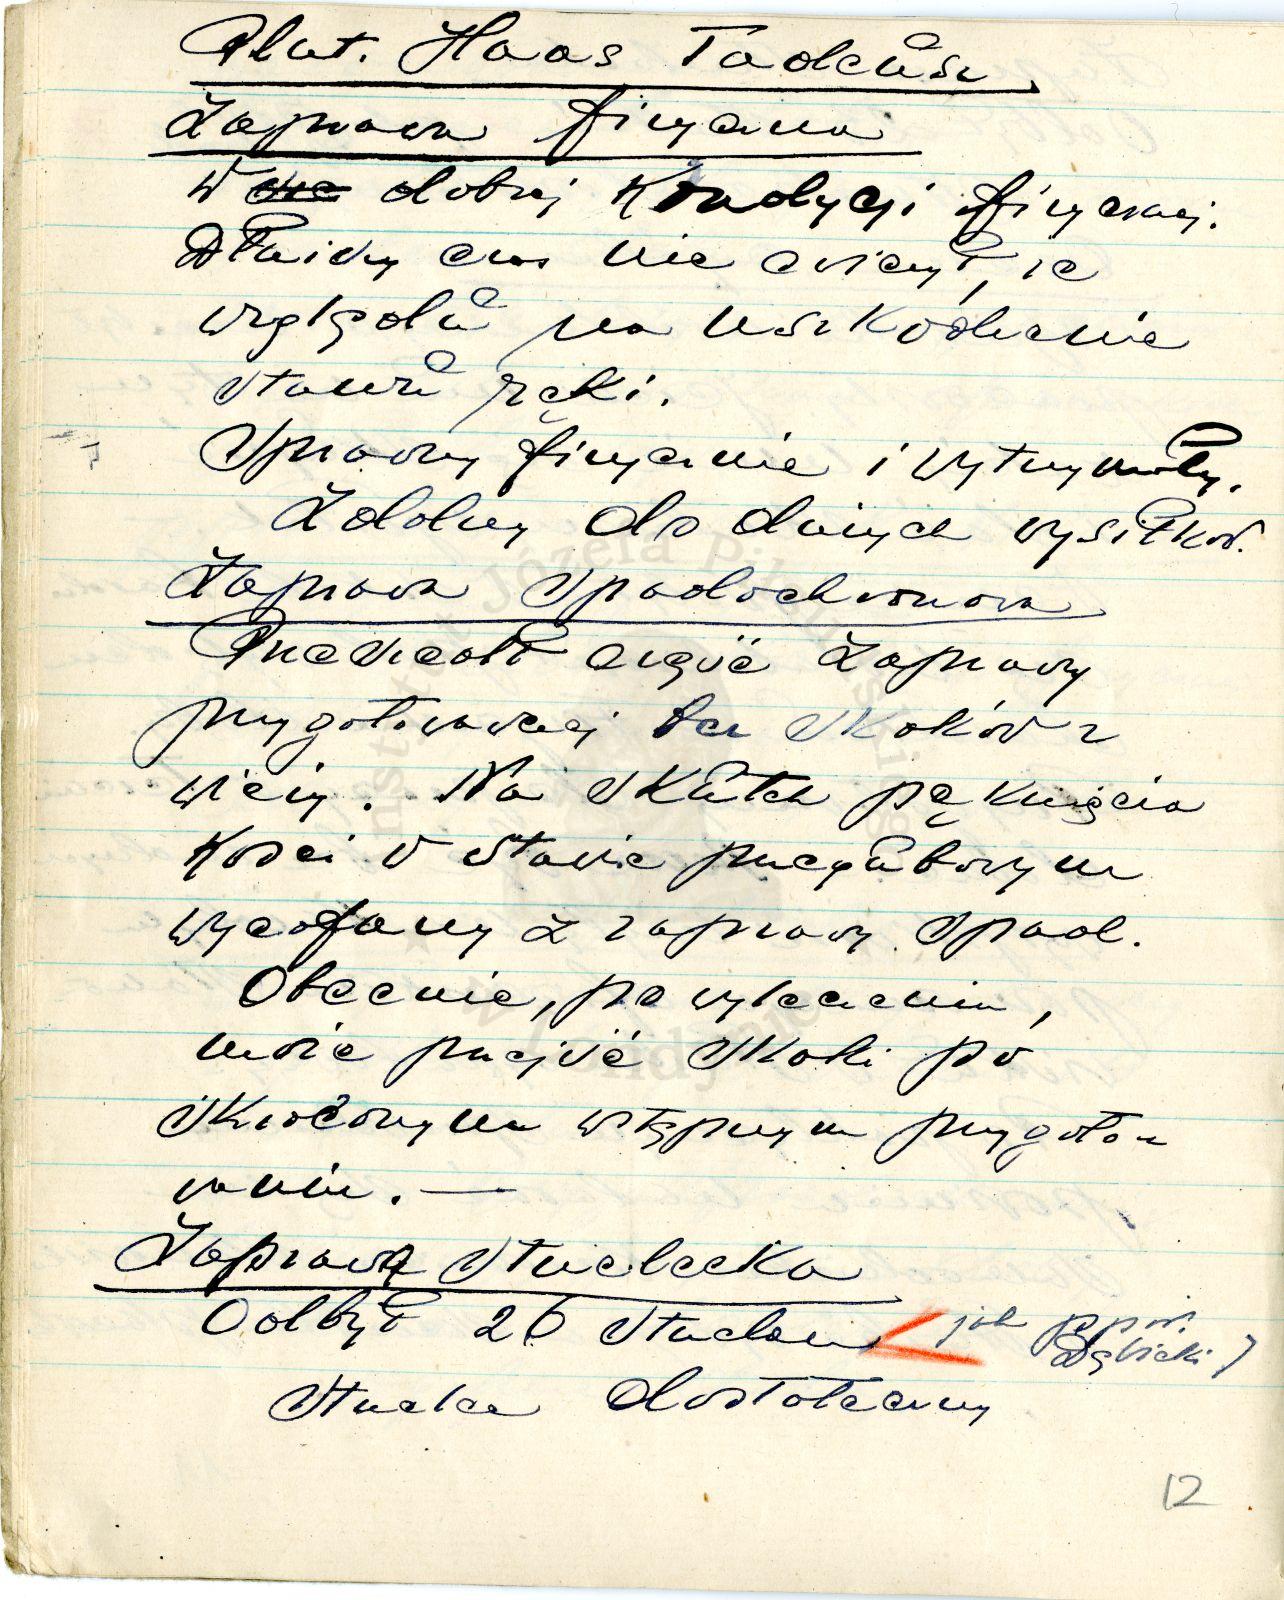 Plut. Haas Tadeusz
Zaprawa fizyczna
W dobrej kondycji fizycznej.
Dłuższy czas nie ćwiczył, ze
względu na uszkodzenie
stawu ręki.
Sprawny fizycznie i wytrzymały.
Zdolny do dużych wysiłków.
Zaprawa spadochronowa
Przeszedł część zaprawy
przygotowawczej do skoków z
wieży. Na skutek pęknięcia
kości w stawie przegubowym
wycofany z zaprawy spad.
Obecnie, po wyleczeniu,
może przejść skoki po
skróconym wstępnym przygoto
waniu. —
Zaprawa strzelecka
Odbył 26 strzelań jak ppor.
Dębicki)
Strzelec dostateczny
12
Instytut Józefa Piłsudskiego
w Londynie